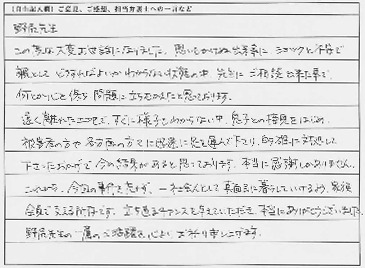 【自由記入欄】ご意見、ご感想、担当弁護士への一言など
野居先生
この度は大変お世話になりました。思いもかけぬ出来事に、ショックと不安で
親としてどうすればよいかわからない状態の中、先生にご相談出来た事で、
何とか心を保ち問題に立ちむかえたと思っております。
遠く離れた で、すぐに様子もわからない中、息子との接見をはじめ、
被害者の方や各方面の方々に迅速に足を運んで下さり、的確に対処して
下さったおかげで今の結果があると思っております。本当に感謝しかありません。
これから、今回の事件を忘れず、一社会人として真面目に暮らしていけるよう、家族
全員で支える所存です。立ち直るチャンスを与えていただき、本当にありがとうございました。
野居先生の一層のご活躍を心よりお祈り申し上げます。